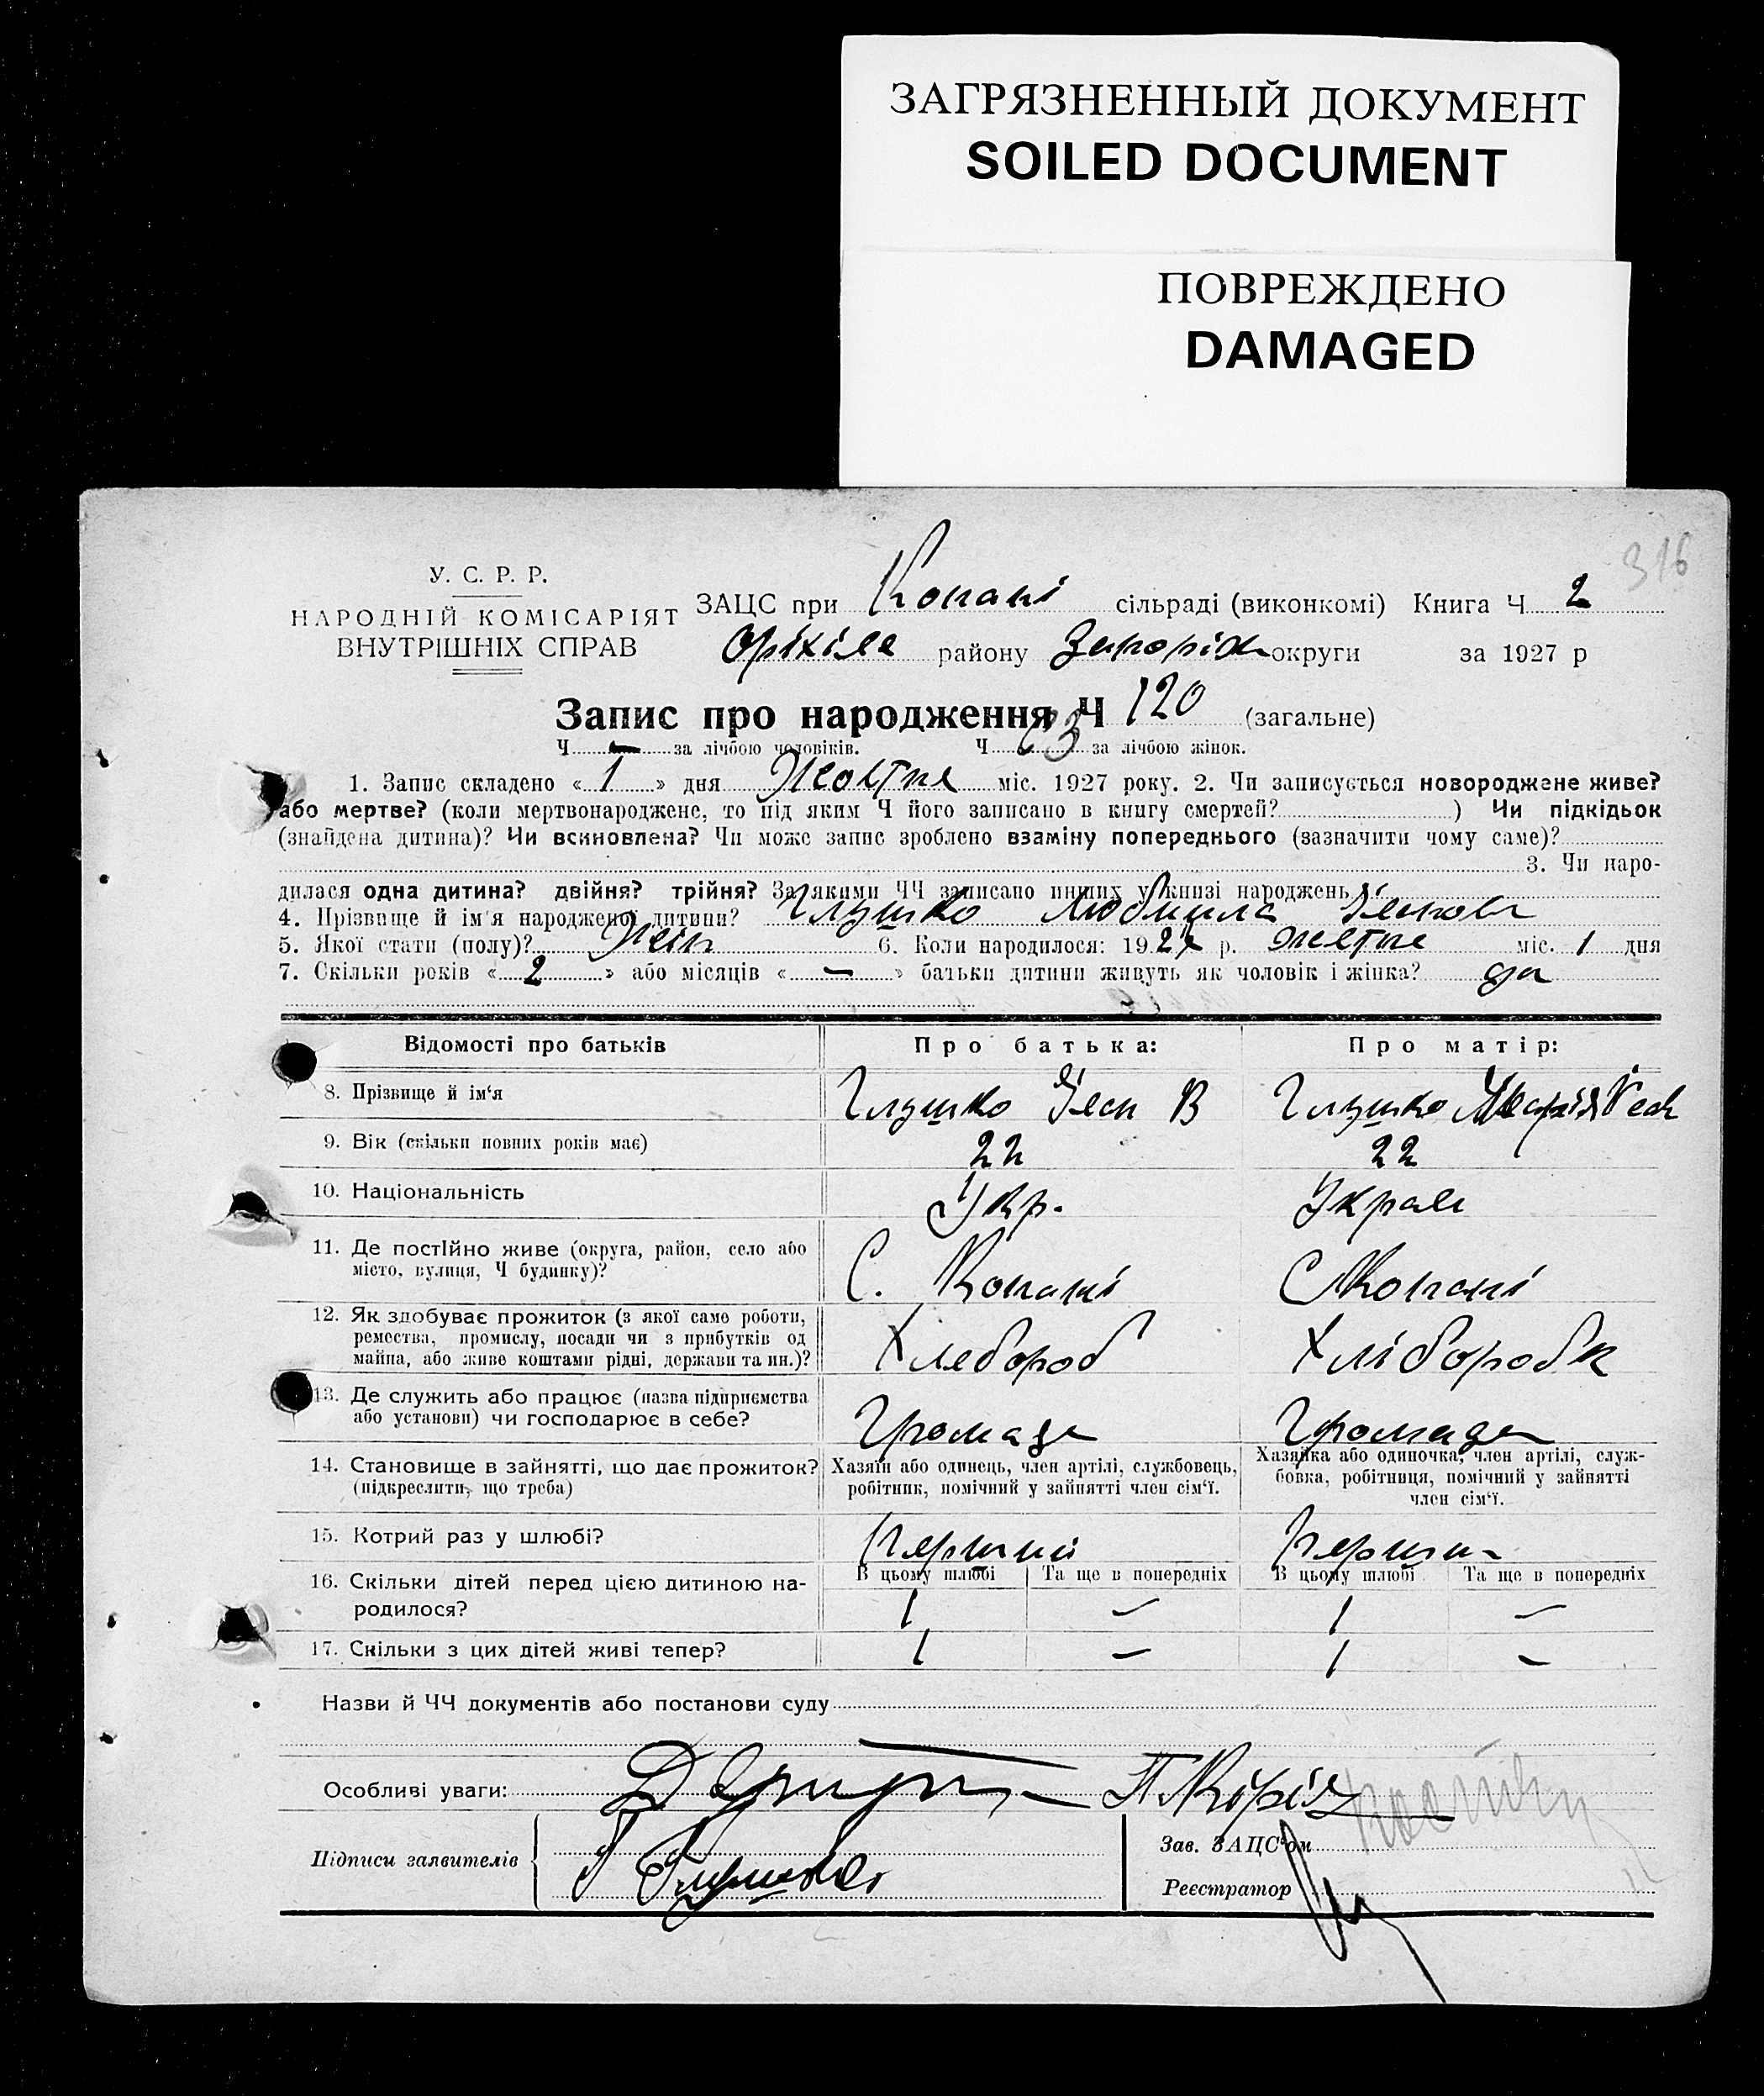 ЗАГРЯЗНЕННЫЙ ДОКУМЕНТ
SOILED DOCUMENT
ПОВРЕЖДЕНО
DAMAGED
316
У. С. Р. Р.
НАРОДНІЙ КОМІСАРІЯТ
ВНУТРІШНІХ СПРАВ
ЗАЦС при Копані сільраді (виконкомі) Книга Ч 2
району округи за 1927 р
Запис про народження Ч 120 (загальне)
Ч — за лічбою чоловіків. Ч за лічбою жінок.
1. Запис складено « 1 » дня міс. 1927 року. 2. Чи записується новороджене живе?
або мертве? (коли мертвонароджене, то під яким Ч його записано в книгу смертей? ) Чи підкідьок
(знайдена дитина)? Чи всиновлена? Чи може запис зроблено взаміну попереднього (зазначити чому саме)?
3. Чи наро-
дилася одна дитина? двійня? трійня? За якими ЧЧ записано инших у книзі народжень
4. Прізвище й ім'я народженої дитини? Глушко Людмила
5. Якої стати (полу)? Жін 6. Коли народилося: 1927 р. міс. 1 дня
7. Скільки років « 2 » або місяців « — » батьки дитини живуть як чоловік і жінка? да
Відомості про батьків Про батька: Про матір:
8. Прізвище й ім'я Глушко В Глушко Марія
9. Вік (скільки повних років має) 22 22
10. Національність Укр. Украї
11. Де постІйно живе (округа, район, село або
місто, вулиця, Ч будинку)? С. Копані С Копані
12. Як здобуває прожиток (з якої саме роботи,
ремества, промислу, посади чи з прибутків од
майна, або живе коштами рідні, держави та ин.)? Хлебороб Хліборобк
13. Де служить або працює (назва підприємства
або установи) чи господарює в себе? Громада Громада
14. Становище в зайнятті, що дає прожиток?
(підкреслити, що треба)
Хазяїн або одинець, член артілі, службовець,
робітник, помічний у зайнятті член сім'ї.
Хазяйка або одиночка, член артілі, служ-
бовка, робітниця, помічний у зайнятті
член сім'ї.
15. Котрий раз у шлюбі? Перший Перши
16. Скільки дітей перед цією дитиною на-
родилося?
В цьому шлюбі Та ще в попередніх В цьому шлюбі Та ще в попередніх
1 — 1 —
17. Скільки з цих дітей живі тепер? 1 — 1 —
Назви й ЧЧ документів або постанови суду
Особливі уваги:
Підписи заявителів Глушко
Зав. ЗАЦС'ом
Реєстратор